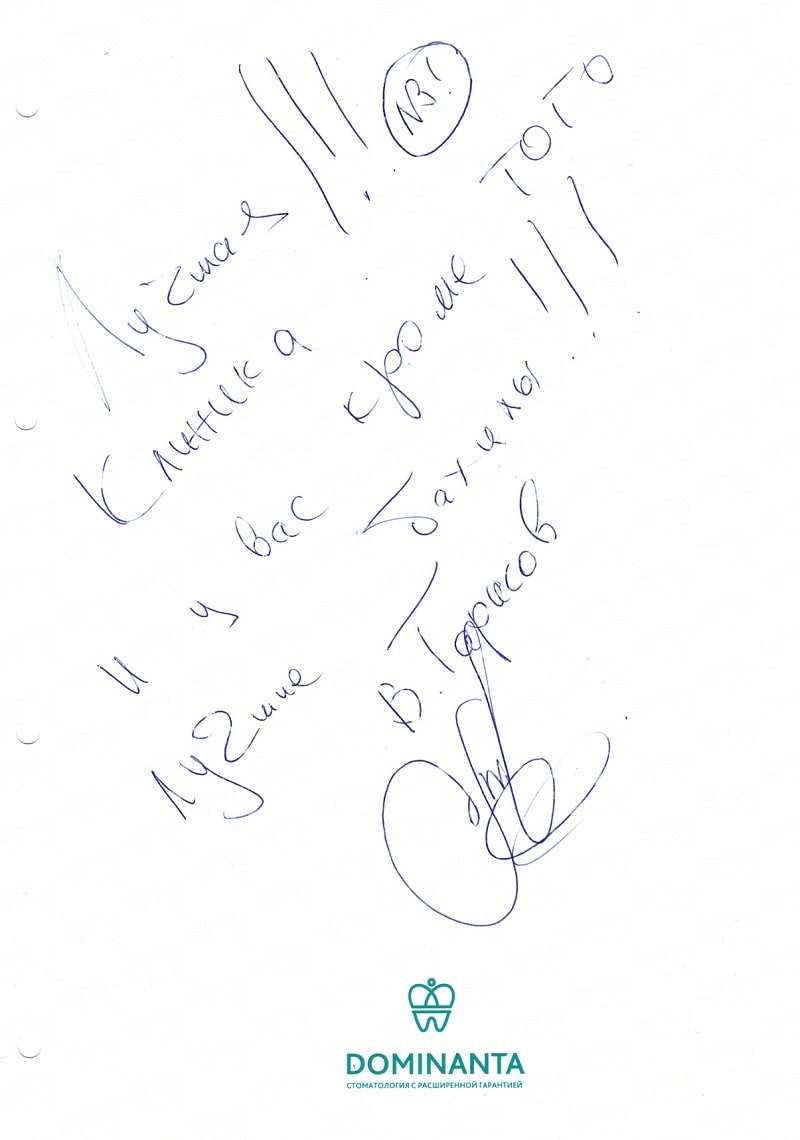 Лучшая !!! NB!
Клиника
И у вас кроме того
лучшие бахилы !!!
В. Тарасов
DOMINANTA
СТОМАТОЛОГИЯ С РАСШИРЕННОЙ ГАРАНТИЕЙ